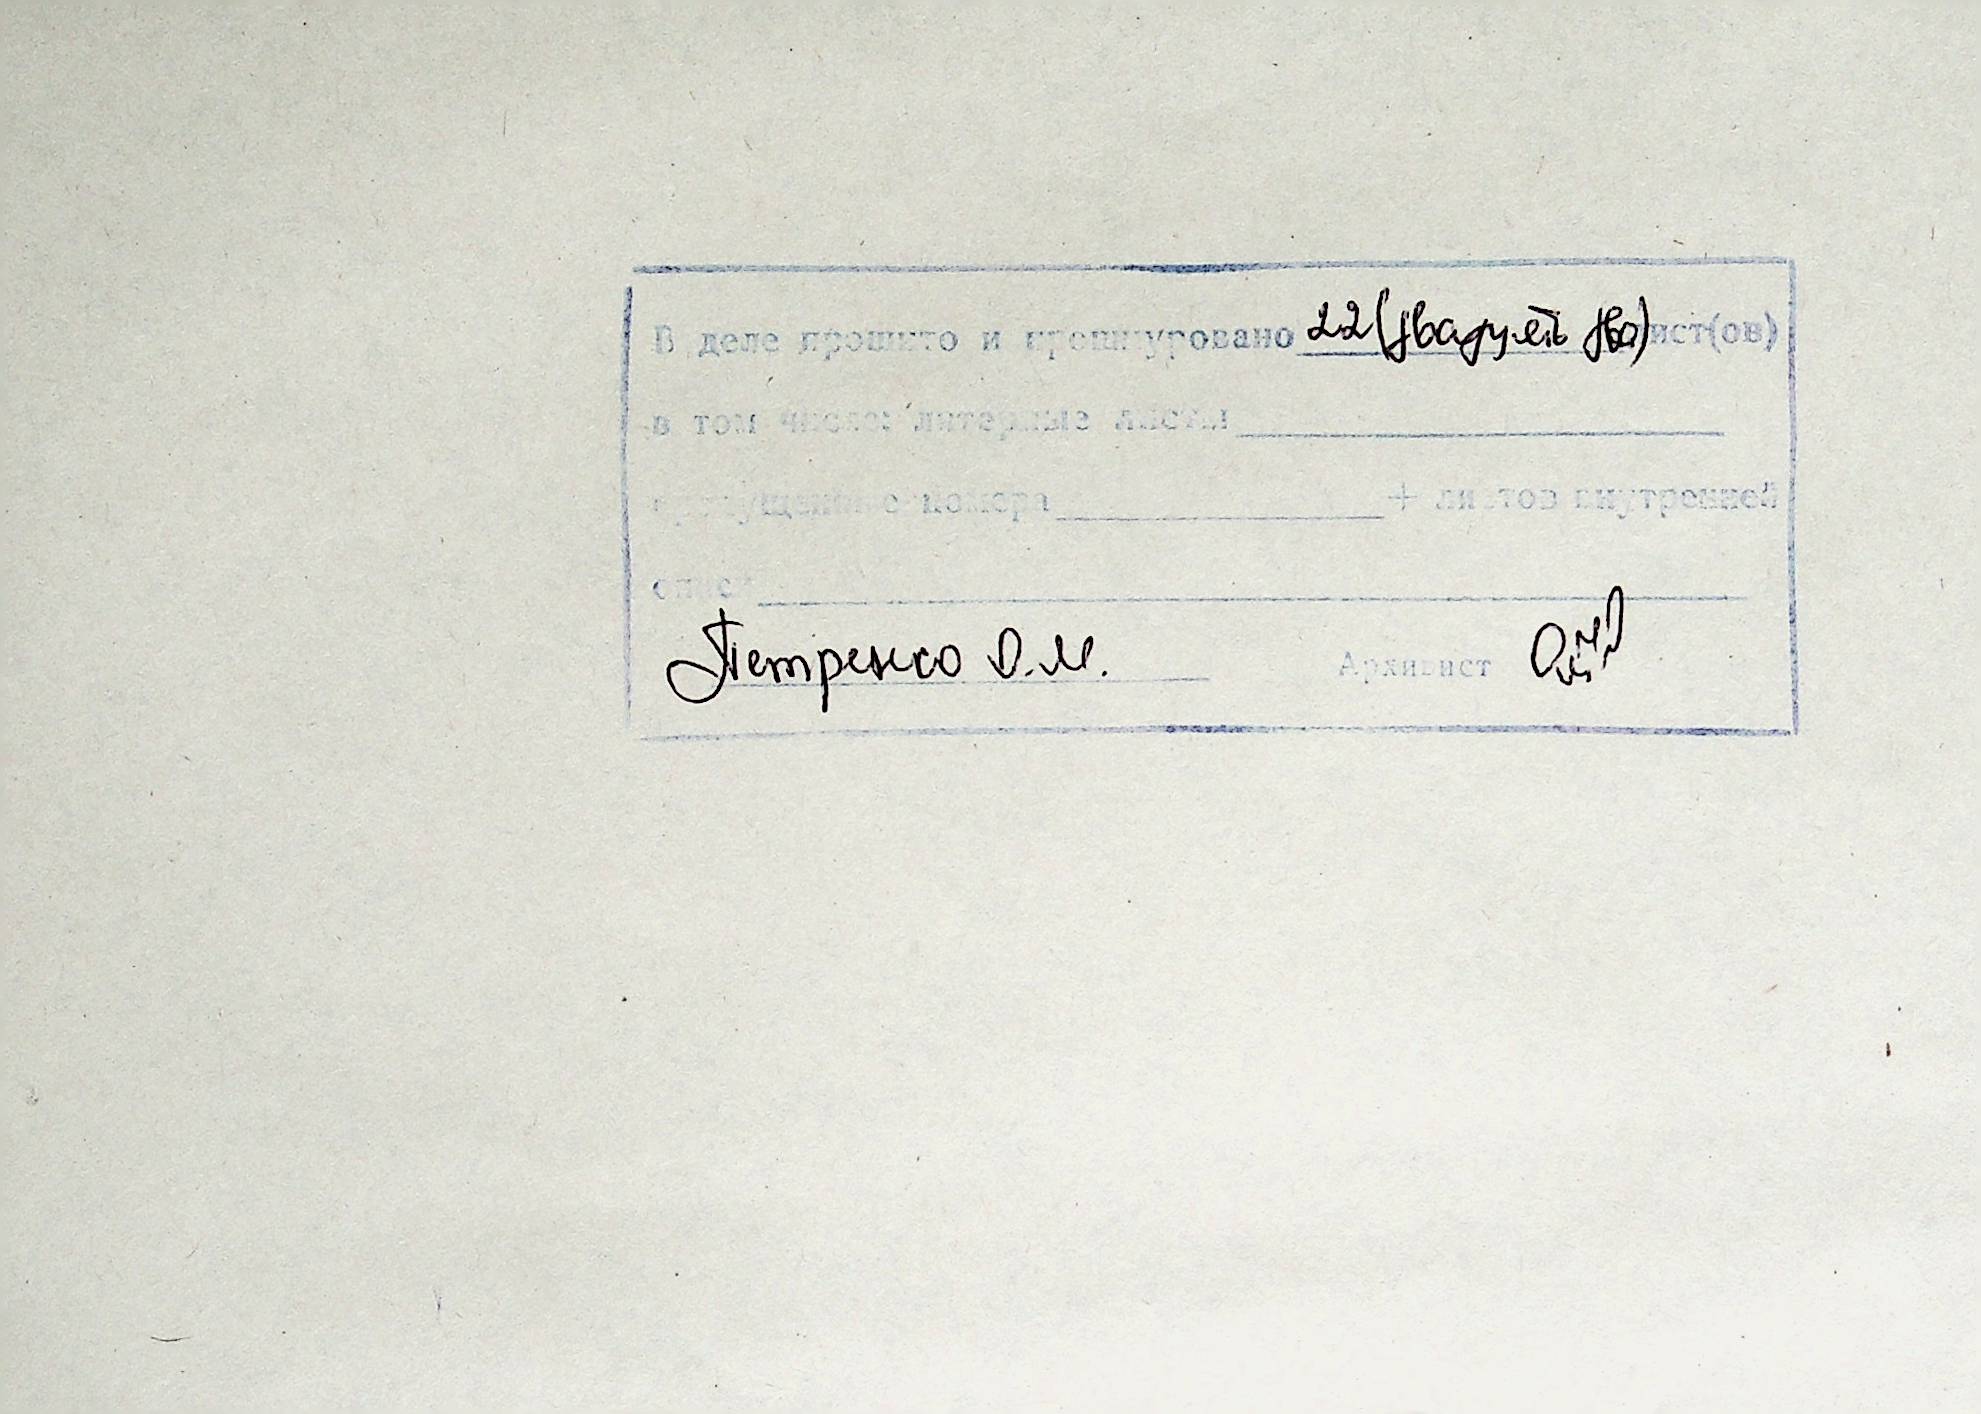 В деле прошито и прошнуровано 22 (двадцать два) лист(ов)
в том числе: литерные листы
пропущенные номера + листов внутренней
описи
Петренко О.М. Архивист